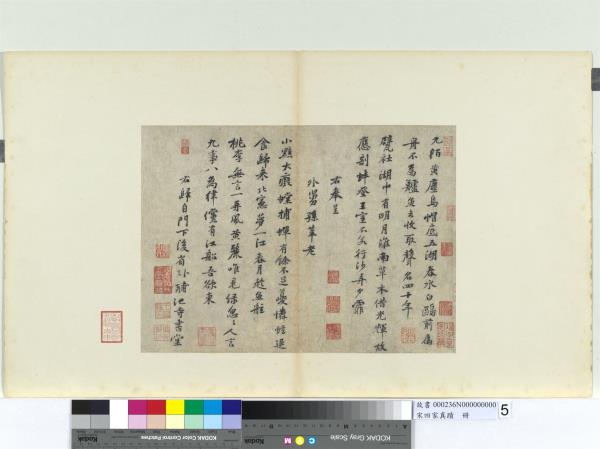 九陌黃塵烏帽底五湖春水白鷗前扁
舟不為鱸魚去收取聲名四十年
甓社湖中有明月淮南草木借光輝故
應剖蚌登王室不若行沙弄夕霏
右奉呈
外舅孫莘老
小黠大癡螳捕蟬有餘不足夔憐蚿退
食歸來北窓夢一江春月趁魚船
桃李無言一再風黃鸝唯見綠忽忽人言
九事八為律儻有江船吾欲東
右歸自門下後省臥酺池寺書堂
故書 000236N000000000
宋四家真蹟 冊
5
Kodak
KODAK Color Control Patches
Kodak
KODAK Gray Scale
C Y M